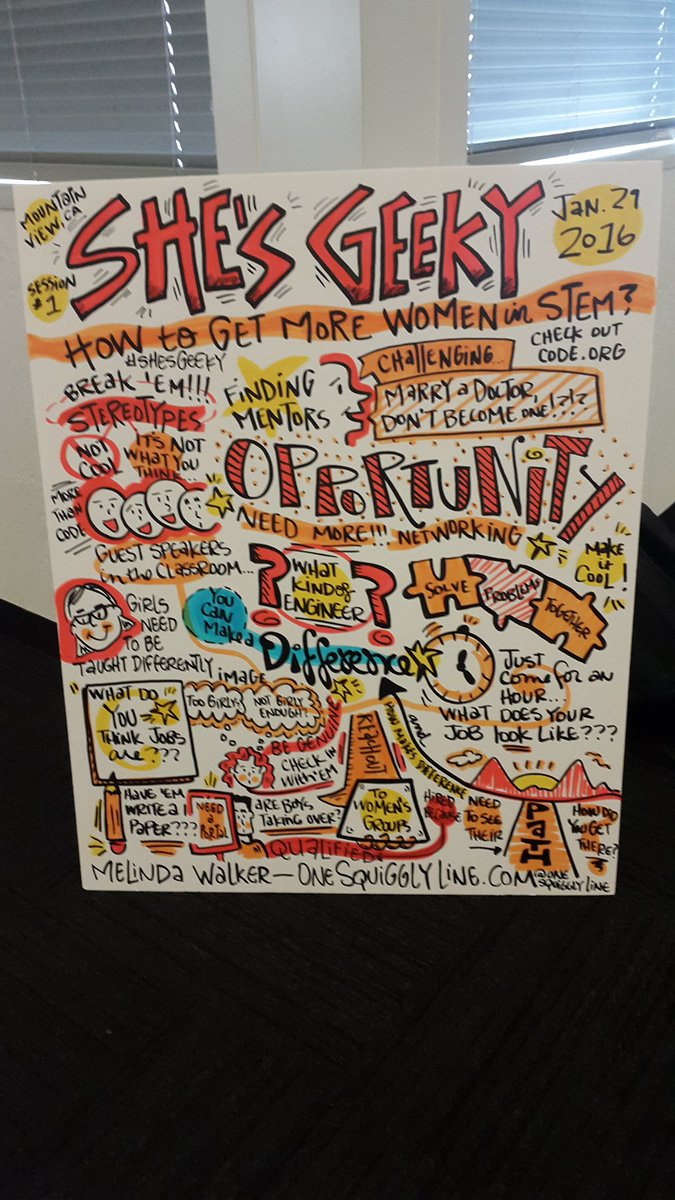 MOUNTAIN
VIEW, CA
SHE'S GEEKY
JAN. 29
2016
SESSION
#1
HOW to GET MORE WOMEN in STEM?
#SHESGEEKY
CHECK OUT
CODE.ORG
BREAK 'EM!!!
STEREOTYPES
NOT
COOL
IT'S NOT
WHAT YOU
THINK...
FINDING
MENTORS
CHALLENGING...
MARRY A DOCTOR,
DON'T BECOME ONE!?!?
OPPORTUNITY
MORE
THAN
CODE
NEED MORE!!! NETWORKING
MAKE
it
COOL!
GUEST SPEAKERS
in the CLASSROOM...
? WHAT
KIND of
ENGINEER ?
SOLVE
PROBLEMS
TOGETHER
GIRLS
NEED
TO BE
TAUGHT DIFFERENTLY
YOU
CAN
Make a
Difference
JUST
COME for AN
HOUR...
WHAT DOES YOUR
JOB look LIKE???
IMAGE
TOO GIRLY?
NOT GIRLY
ENOUGH?
WHAT DO
YOU
THINK JOBS
are???
BE GENUINE
CHECK IN
WITH 'EM
TO
WOMEN'S
GROUPS
and
MAKES DIFFERENCE
HIRED
BECAUSE
QUALIFIED
HAVE 'EM
WRITE A
PAPER???
NEED
A
ARE BOYS
TAKING OVER?
NEED
TO SEE
THEIR
PATH
HOW DID
YOU GET
THERE?
MELINDA WALKER — ONESQUIGGLYLINE.COM
@ONE
SQUIGGLYLINE